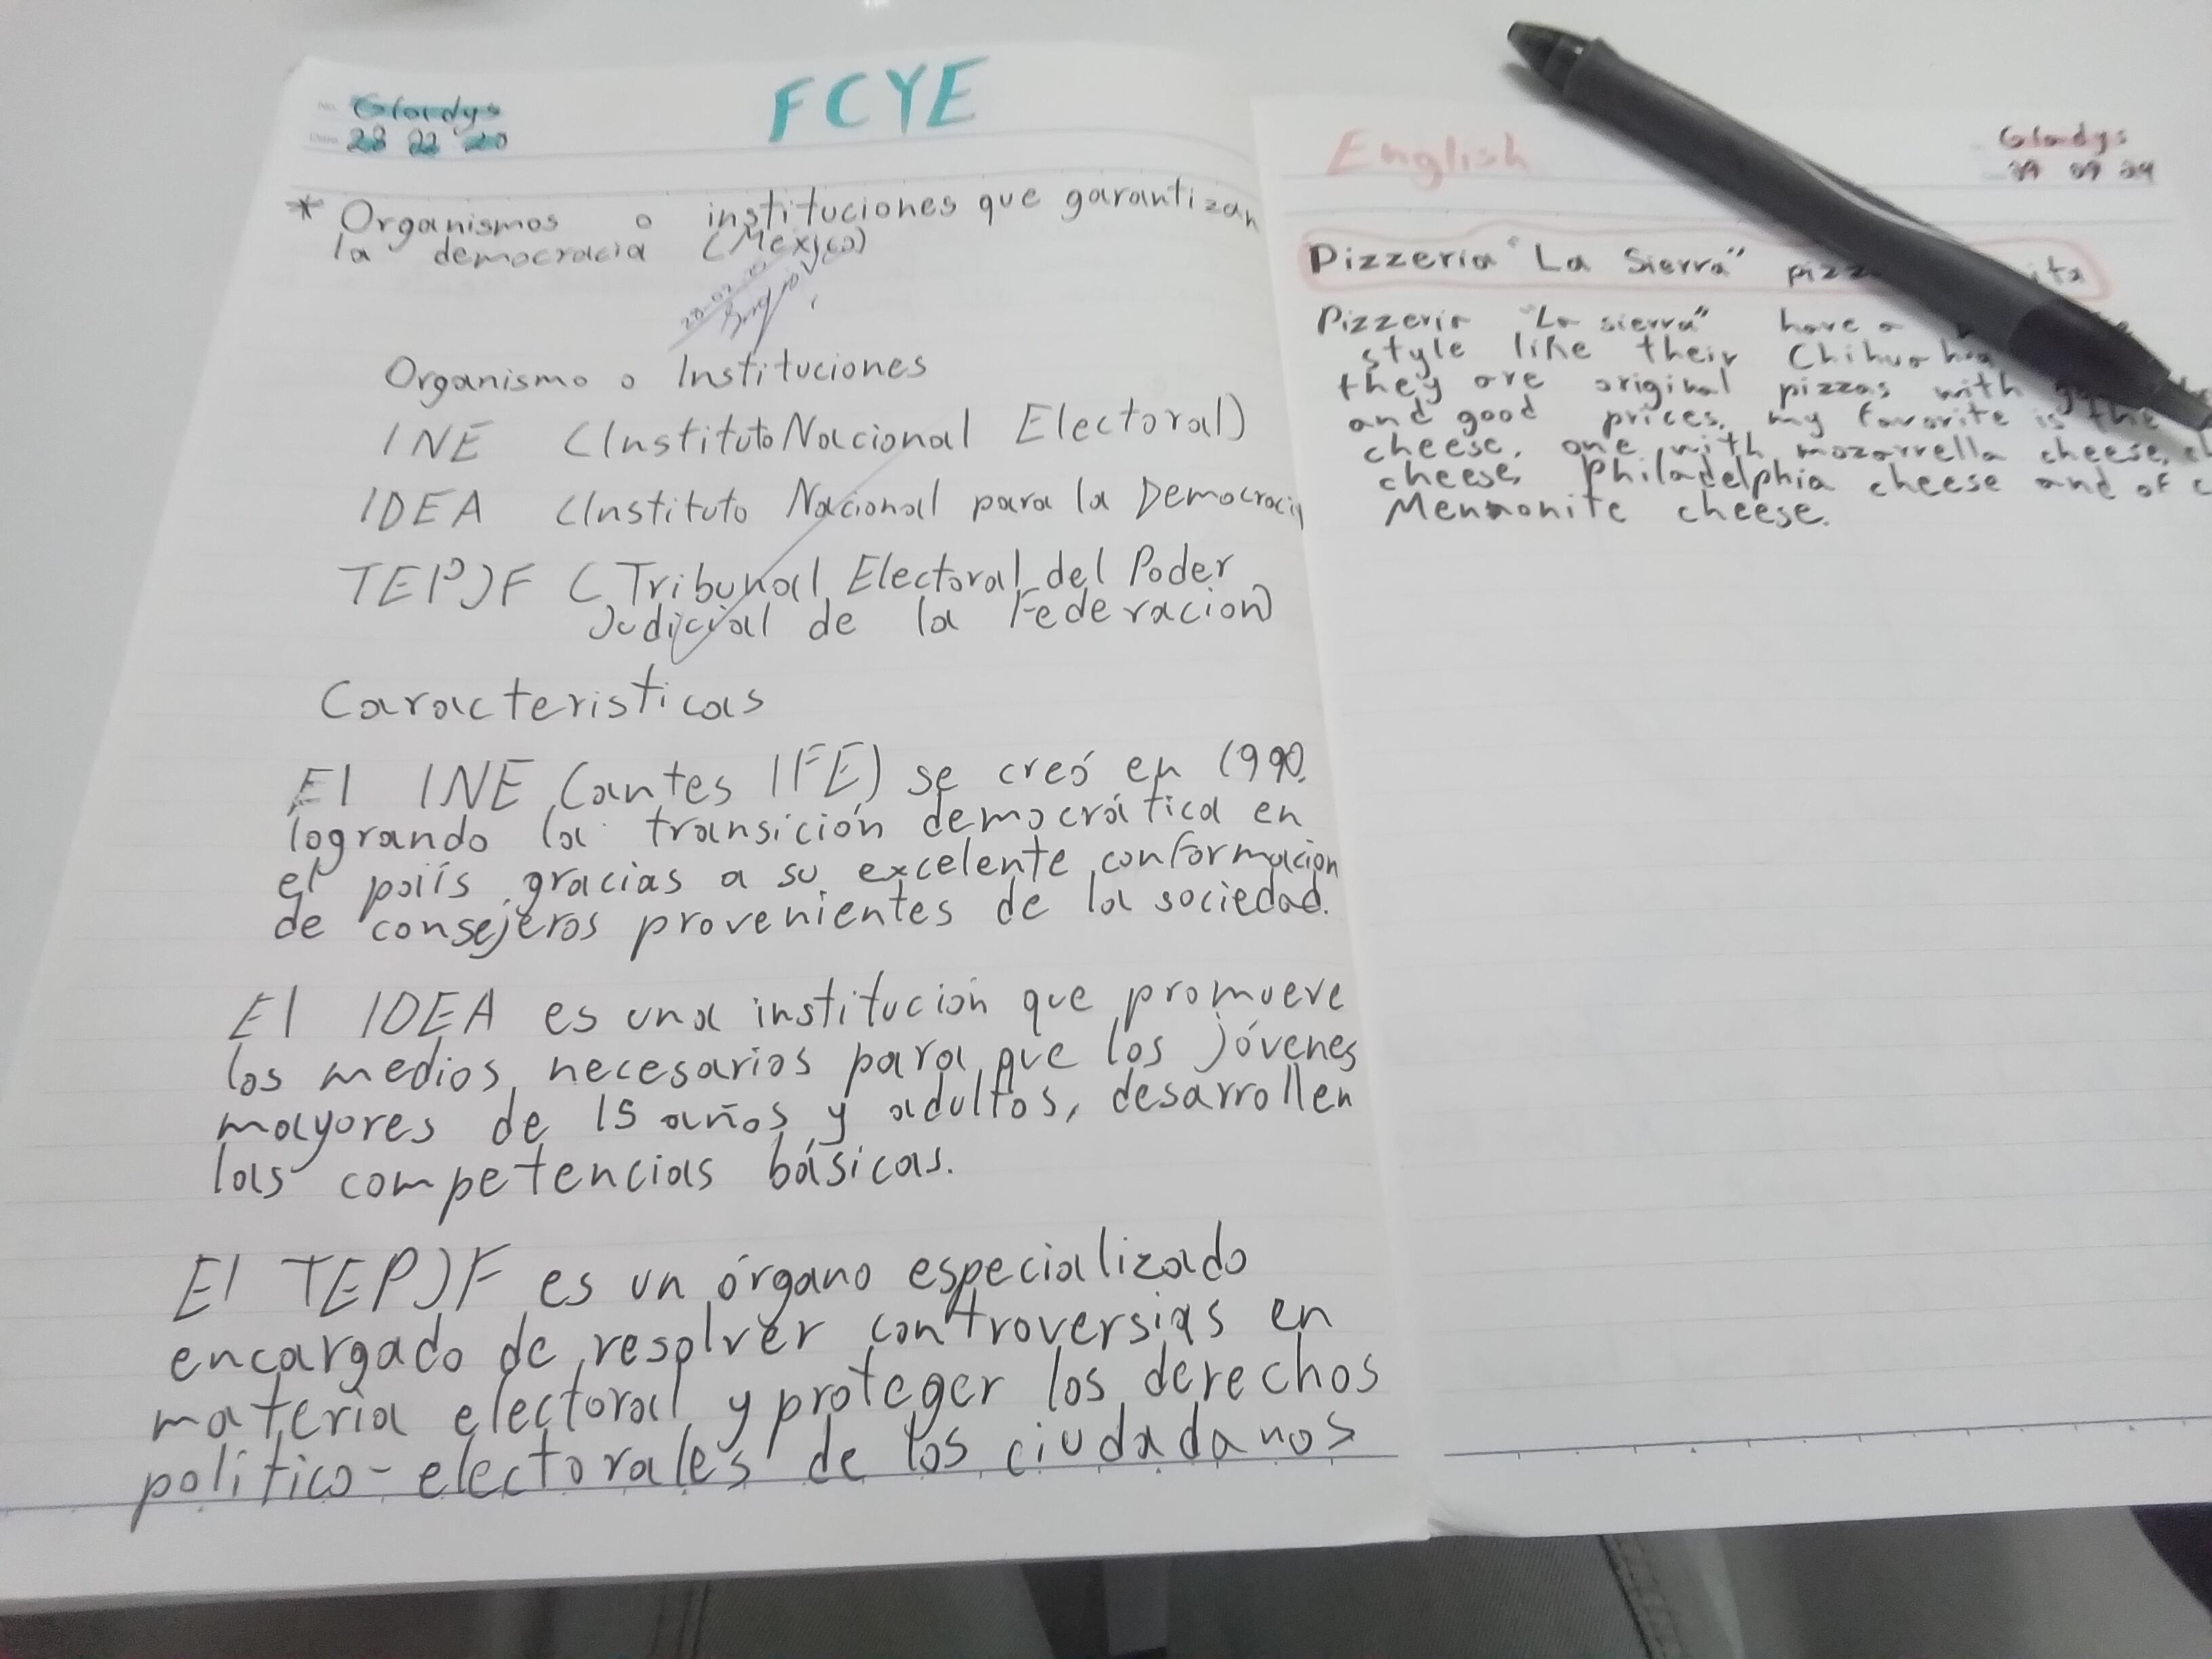 Gladys
FCYE
* Organismos o instituciones que garantizan
la democracia (Mexico)
Organismo o Instituciones
INE (Instituto Nacional Electoral)
IDEA (Instituto Nacional para la Democracia
TEPJF (Tribunal Electoral del Poder
Judicial de la Federacion)
Caracteristicas
El INE (antes IFE) se creó en 1990.
logrando la transición democrática en
el país gracias a su excelente conformacion
de consejeros provenientes de la sociedad.
El IDEA es una institución que promueve
los medios necesarios para que los jóvenes
mayores de 15 años y adultos, desarrollen
las competencias básicas.
El TEPJF es un órgano especializado
encargado de resolver controversias en
materia electoral y proteger los derechos
politico-electorales de los ciudadanos
English
Gladys
Pizzeria "La Sierra"
Pizzeria "La sierra" have a
style like their
they are original pizzas with
and good prices, my favorite is the
cheese, one with mozarrella cheese,
cheese, Philadelphia cheese and of
Mennonite cheese.